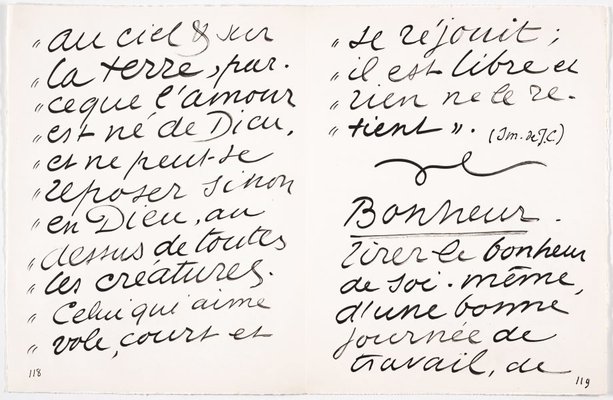 " au ciel & sur
" la terre, par-
" ceque l'amour
" est né de Dieu,
" et ne peut se
" reposer sinon
" en Dieu, au
" dessus de toutes
" les créatures.
" Celui qui aime
" vole, court et
118
" se réjouit ;
" il est libre et
" rien ne le re-
" tient ». (Im. de J.C)
Bonheur.
Tirer le bonheur
de soi-même,
d'une bonne
journée de
travail, de
119